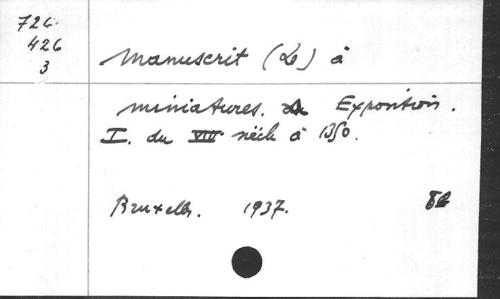 726
426
3
Manuscrit (Le) à
miniatures. Exposition.
I. du VIII siècle à 1350.
Bruxelles. 1937.